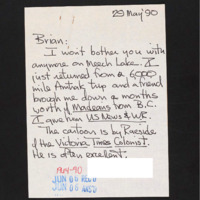 29 May '90
Brian:
I won't bother you with
anymore on Meech Lake. I
just returned from a 6000
mile Amtrak trip and a friend
brough me down a months
worth of Macleans from B.C.
I gave him US News & W.R.
The cartoon is by Raeside
of the Victoria Times Colonist.
He is often excellent.
JUN 06
JUN 06